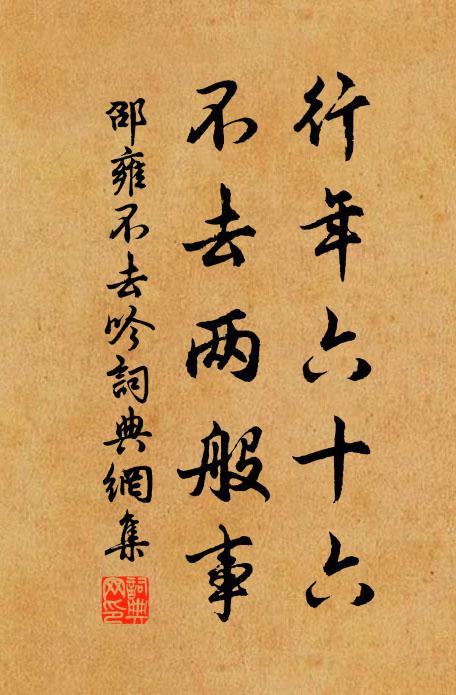 行年六十六
不去两般事
邵雍不去吟詞典網集
詞典网印